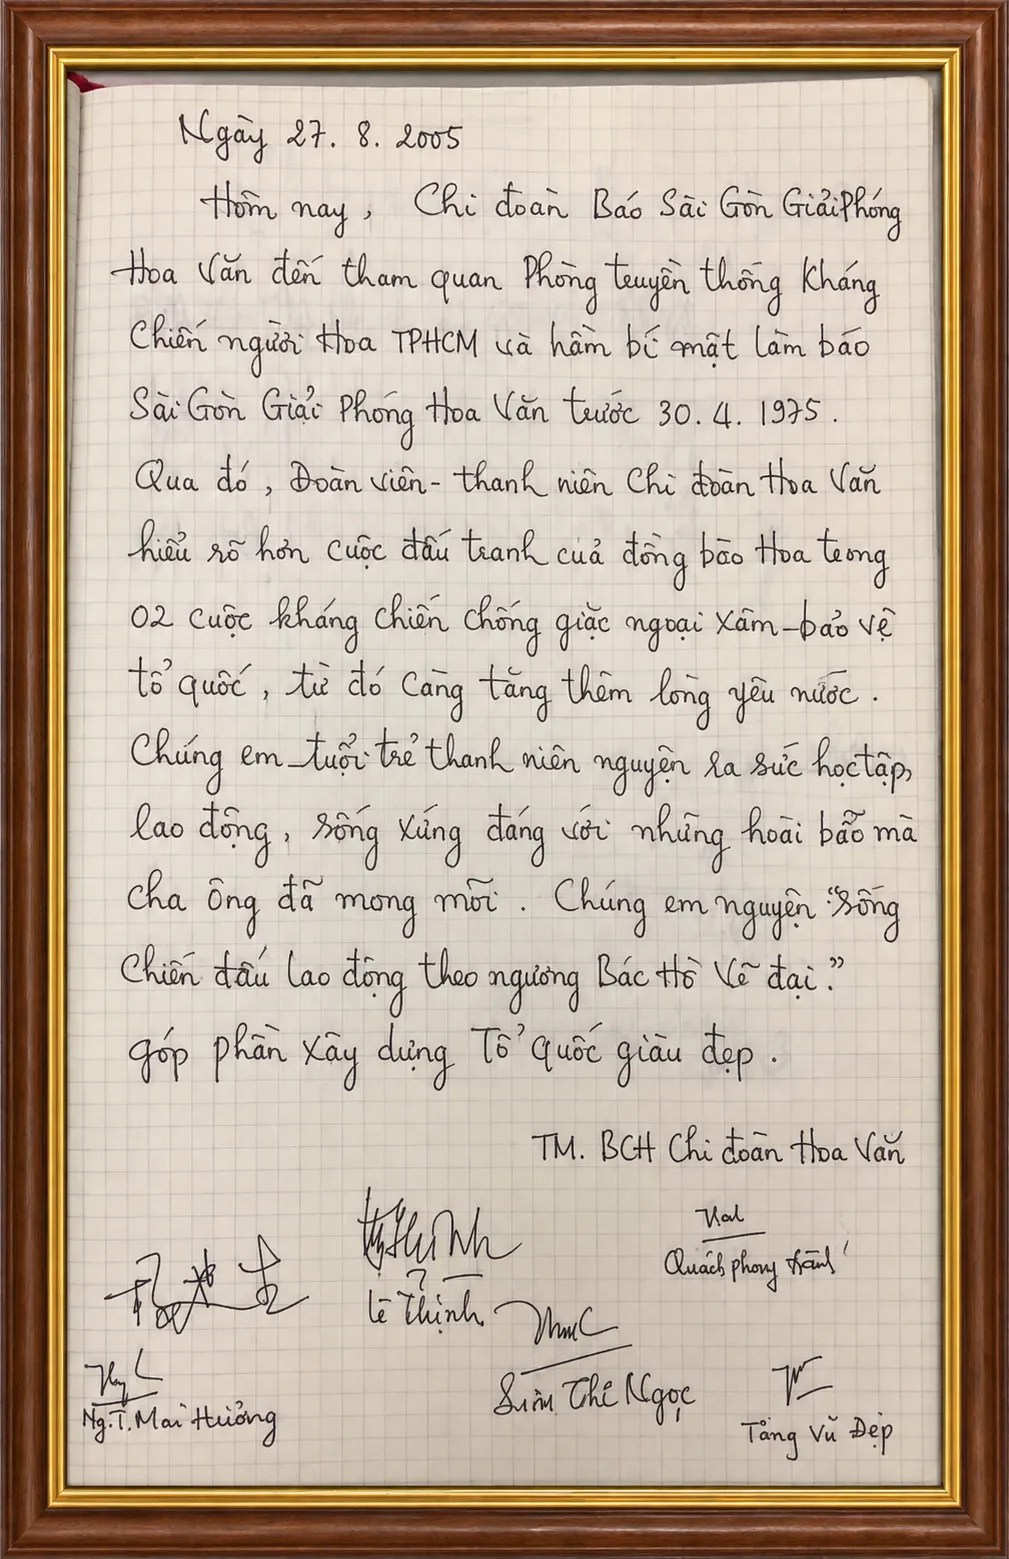 Ngày 27. 8. 2005
Hôm nay, Chi đoàn Báo Sài Gòn Giải Phóng
Hoa Văn đến tham quan Phòng truyền thống Kháng
Chiến người Hoa TPHCM và hầm bí mật làm báo
Sài Gòn Giải Phóng Hoa Văn trước 30. 4. 1975.
Qua đó, Đoàn viên - thanh niên Chi đoàn Hoa Văn
hiểu rõ hơn cuộc đấu tranh của đồng bào Hoa trong
02 cuộc kháng chiến chống giặc ngoại xâm - bảo vệ
tổ quốc, từ đó càng tăng thêm lòng yêu nước.
Chúng em - tuổi trẻ thanh niên nguyện ra sức học tập,
lao động, sống xứng đáng với những hoài bão mà
cha ông đã mong mỗi. Chúng em nguyện "sống
Chiến đấu lao động theo ngương Bác Hồ Vĩ đại."
góp phần xây dựng Tổ quốc giàu đẹp.
TM. BCH Chi đoàn Hoa Văn
Quách phong
Lê Thịnh
Thi Ngọc
Ng.T. Mai Hưởng
Tăng Vũ Đẹp